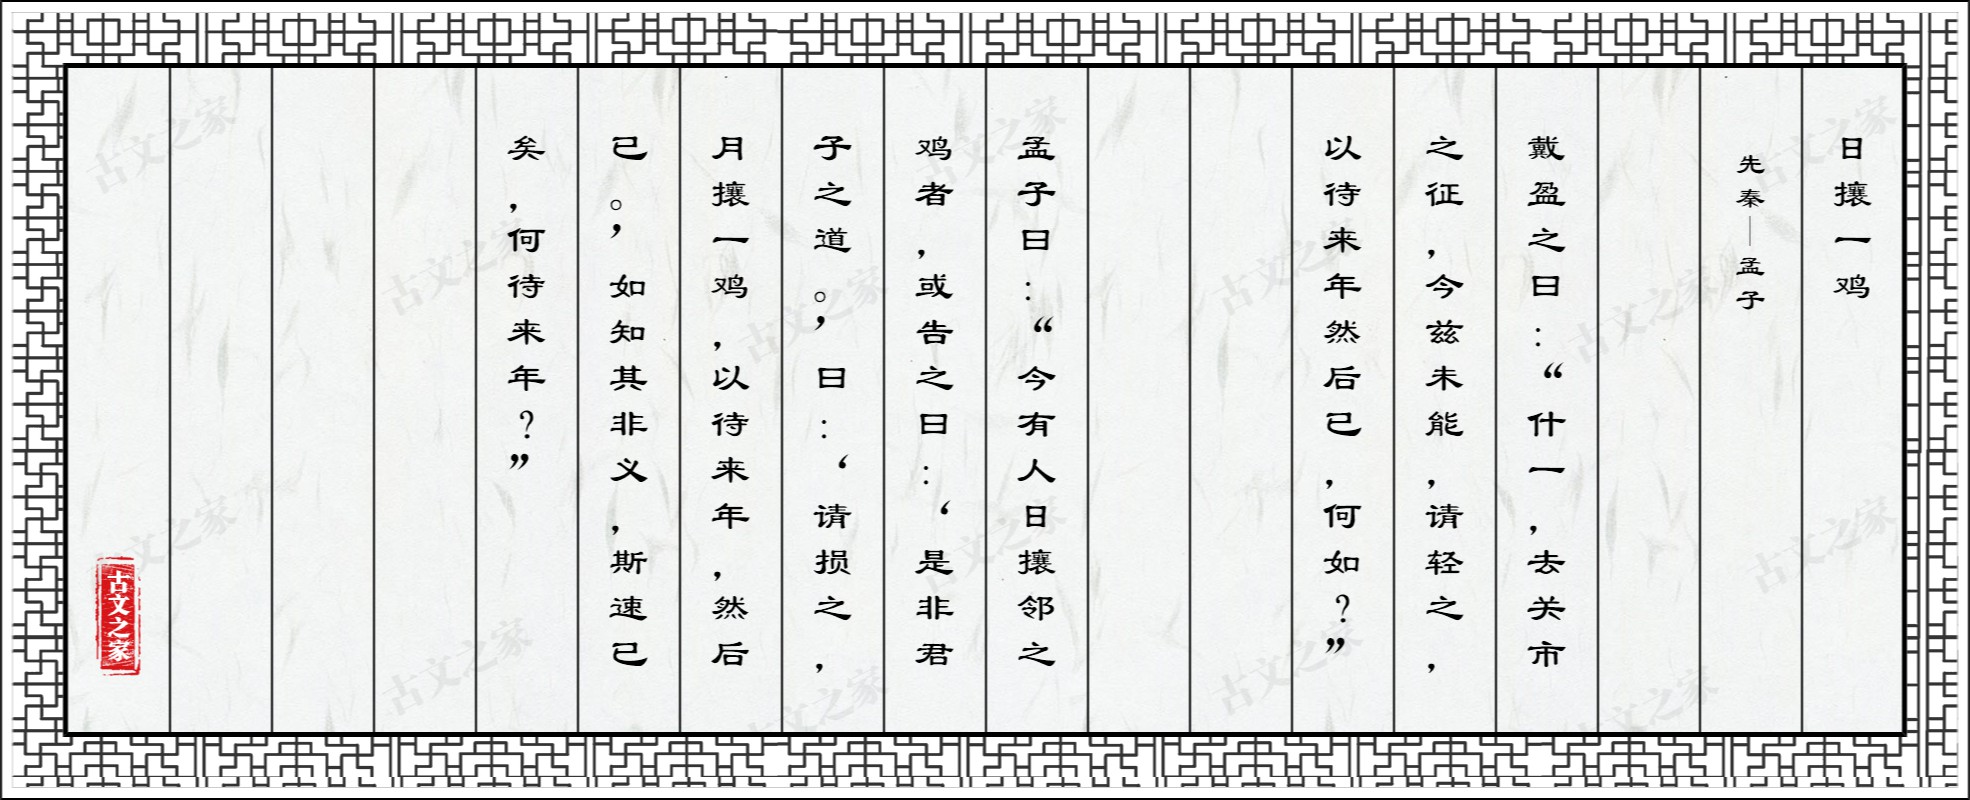 日攘一鸡
先秦—孟子
戴盈之曰：“什一，去关市
之征，今兹未能，请轻之，
以待来年然后已，何如？”
孟子曰：“今有人日攘邻之
鸡者，或告之曰：‘是非君
子之道。’曰：‘请损之，
月攘一鸡，以待来年，然后
已。’如知其非义，斯速已
矣，何待来年？”
古文之家